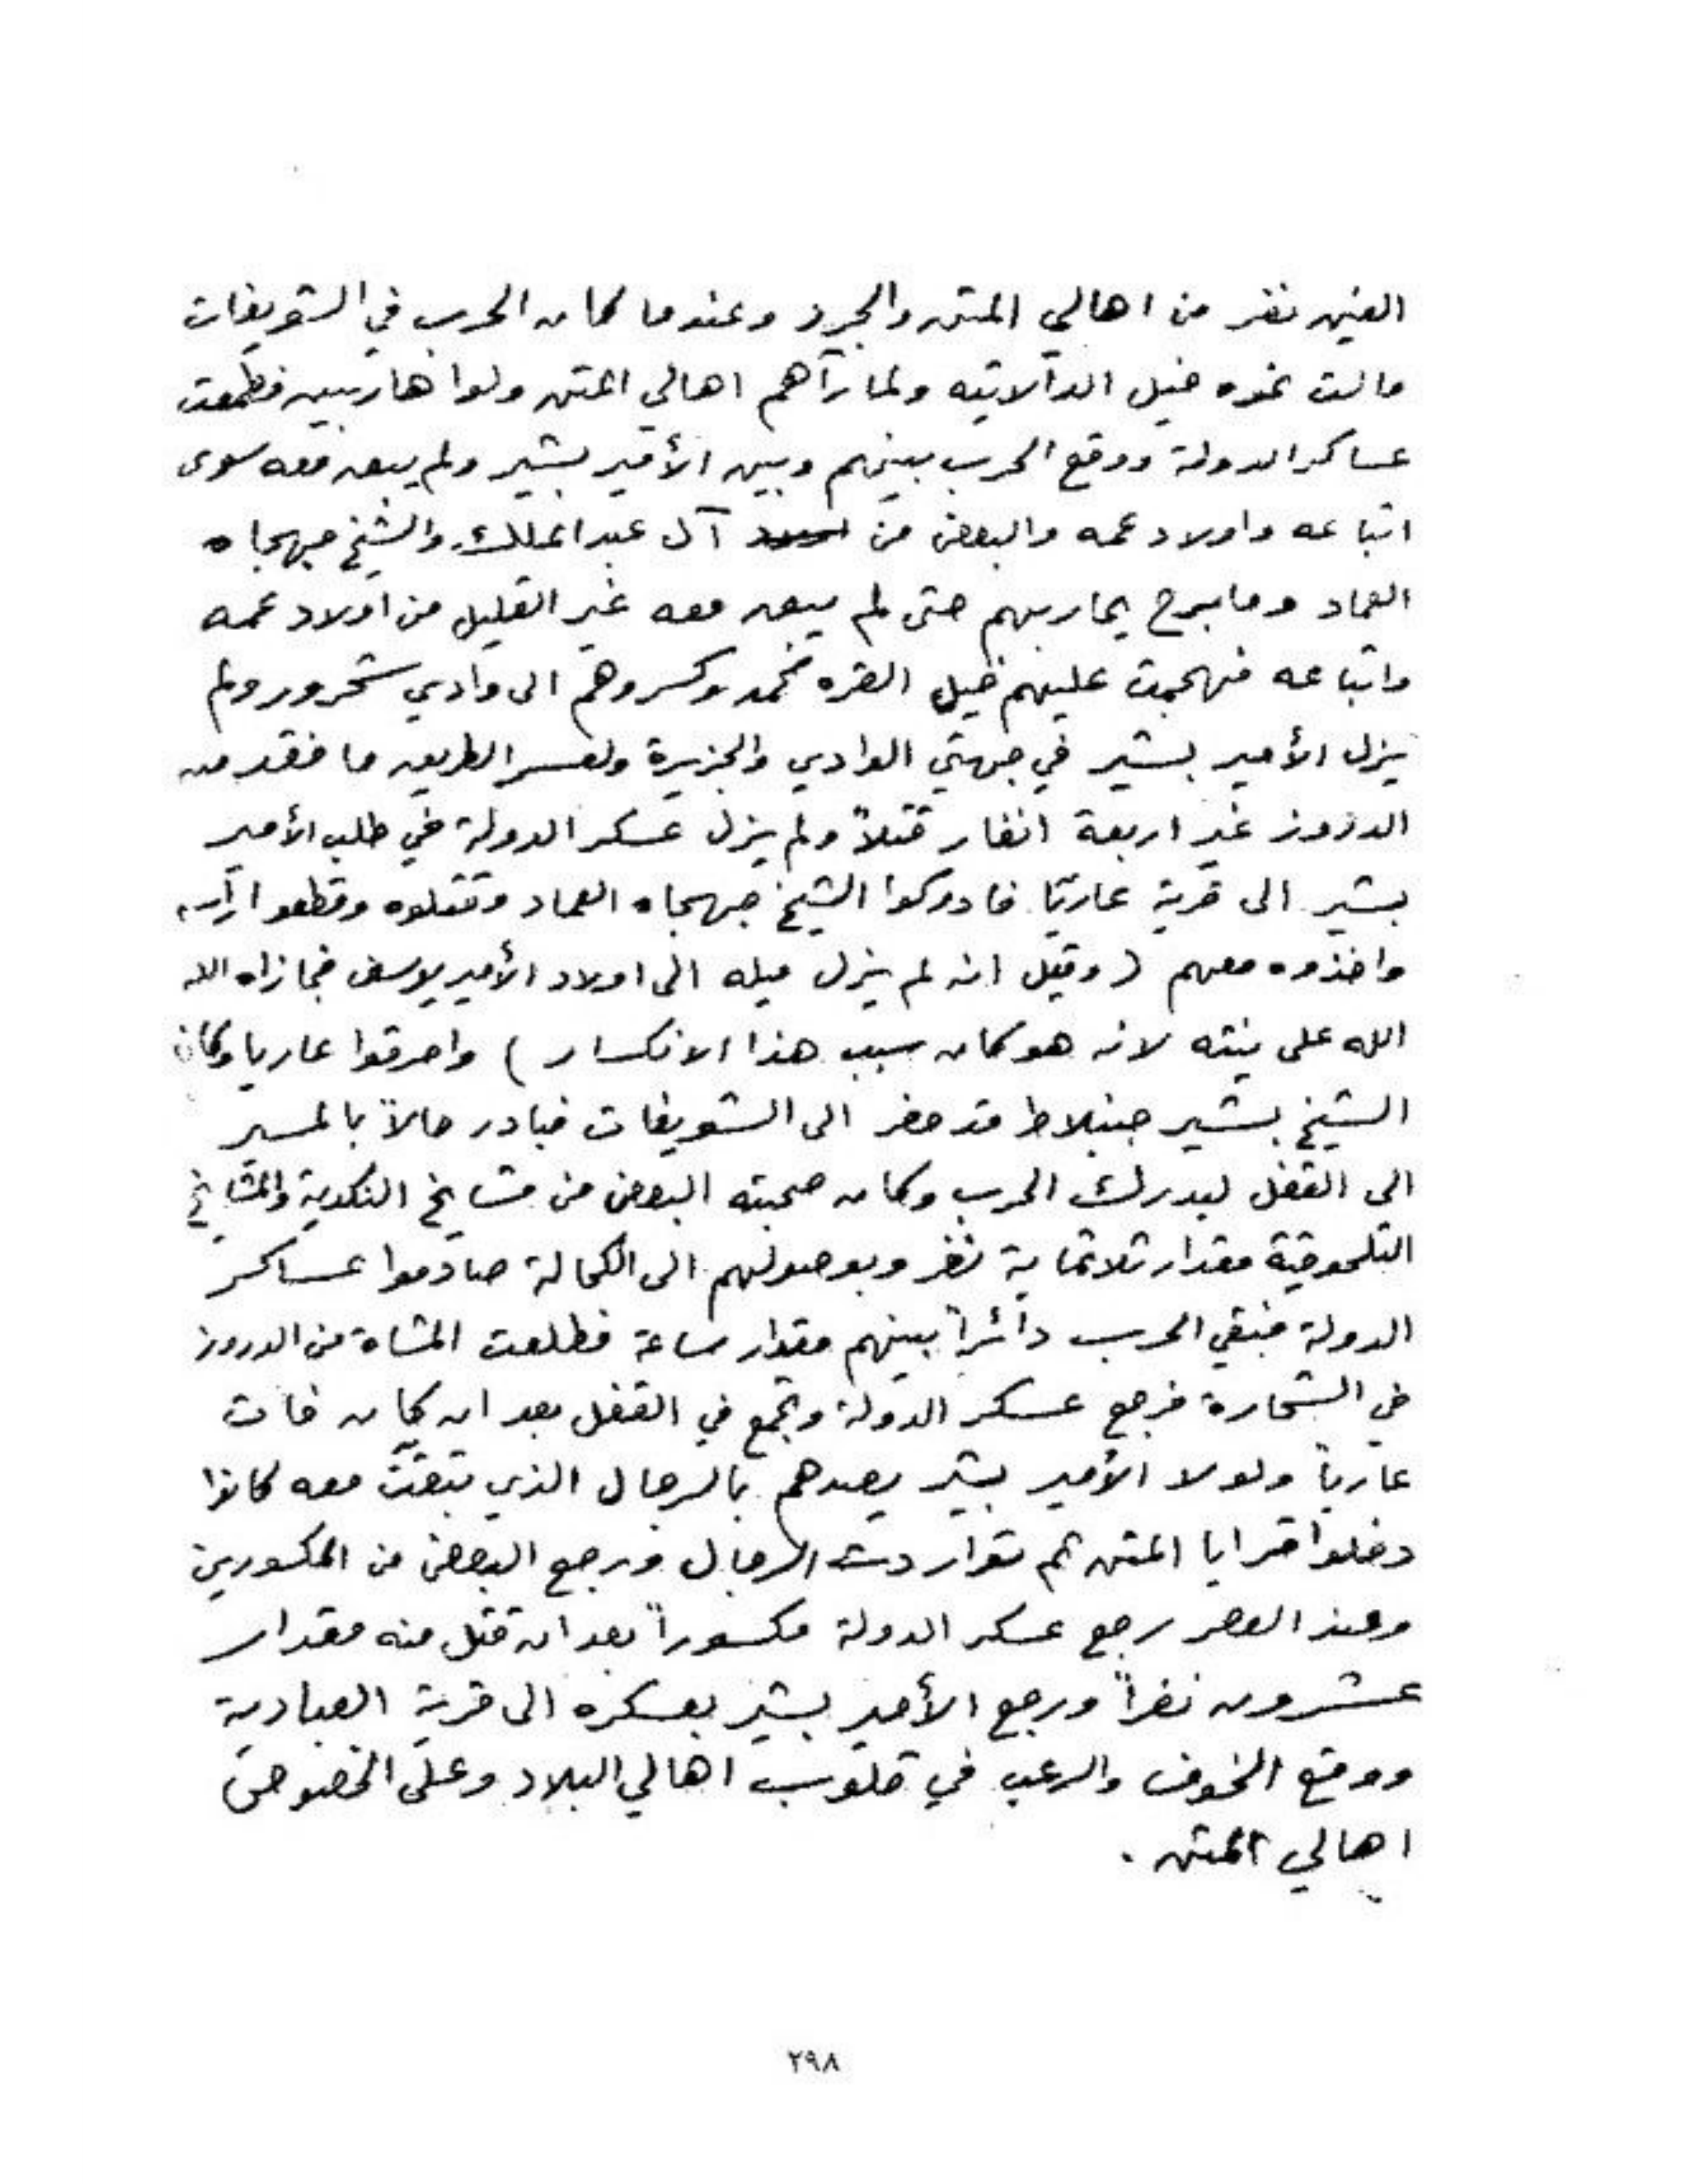 الفين نفر من اهالي المتن والجرد وعندما كان الحرب في الشويفات
مالت نحوه خيل الدالاتيه ولما رآهم اهالي المتن ولوا هاربين فطمعت
عساكر الدولة ووقع الحرب بينهم وبين الأمير بشير ولم يبق معه سوى
اتباعه واولاد عمه والبعض من آل عبد الملك والشيخ جهجاه
العماد وما برح يحاربهم حتى لم يبق معه غير القليل من اولاد عمه
واتباعه فهجمت عليهم خيل القره محمد وكسروهم الى وادي شحرور ولم
يزل الأمير بشير في جهتي الوادي والجزيرة ولعسر الطريق ما فقد من
الدروز غير اربعة انفار قتلاً ولم يزل عسكر الدولة في طلب الأمير
بشير الى قرية عاريّا فادركوا الشيخ جهجاه العماد وقتلوه وقطعوا راسه
واخذوه معهم (وقيل انه لم يزل ميله الى اولاد الأمير يوسف فجازاه الله
الله على نيته لانه هو كان سبب هذا الانكسار) واحرقوا عاريا وكان
الشيخ بشير جنبلاط قد حضر الى الشويفات فبادر حالاً بالمسير
الى القفل ليدرك الحرب وكان صحبته البعض من مشايخ النكدية والمشايخ
التلحوقية مقدار تلاتماية نفر وبوصولهم الى الكحالة صادموا عساكر
الدولة فبقي الحرب دائراً بينهم مقدار ساعة فطلعت المشاة من الدروز
في الشحارة فرجع عسكر الدولة وتجمع في القفل بعد ان كان فات
عارياً ولولا الأمير بشير يصدهم بالرجال الذي تبقّت معه كانوا
دخلوا قرايا المتن ثم تواردت الرجال ورجع البعض من المكسورين
وعند العصر رجع عسكر الدولة مكسوراً بعد ان قتل منه مقدار
عشرون نفراً ورجع الأمير بشير بعسكره الى قرية العبادية
ووقع الخوف والرعب في قلوب اهالي البلاد وعلى الخصوص
اهالي المتن .
٢٩٨